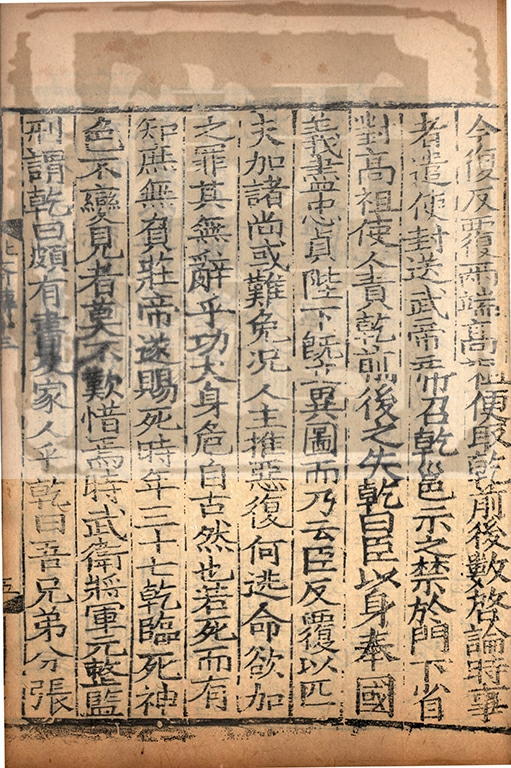 今復反覆兩端高祖便取乾前後數啓論時事
者遣使封送武帝帝召乾邕示之禁於門下省
對高祖使人責乾前後之失乾曰臣以身奉國
義盡忠貞陛下旣立異圖而乃云臣反覆以匹
夫加諸尚或難免况人主推惡復何逃命欲加
之罪其無辭乎功大身危自古然也若死而有
知庶無負莊帝遂賜死時年三十七乾臨死神
色不變見者莫不歎惜焉時武衛將軍元整監
刑謂乾曰頗有書及家人乎乾曰吾兄弟分張
五